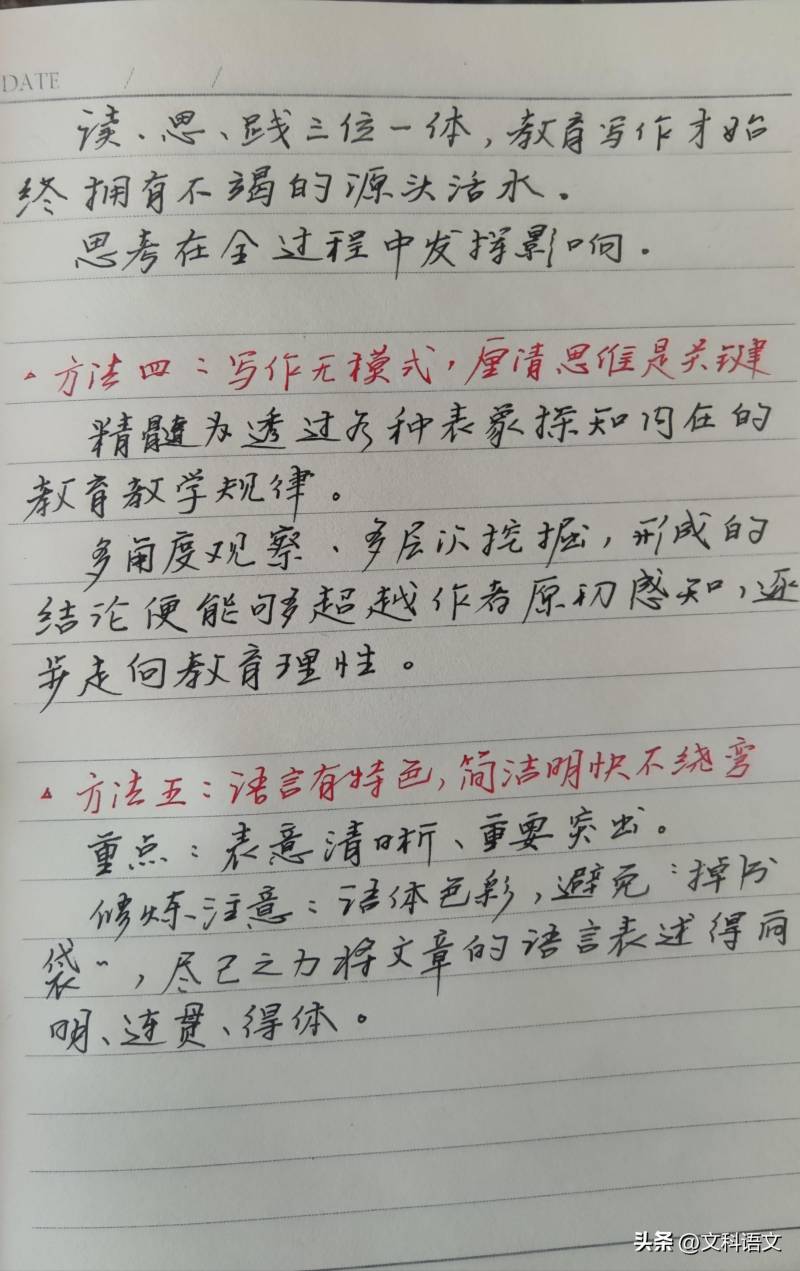 DATE / /
读、思、践三位一体，教育写作才始
终拥有不竭的源头活水。
思考在全过程中发挥影响。
▲方法四：写作无模式，厘清思维是关键
精髓为透过各种表象探知内在的
教育教学规律。
多角度观察、多层次挖掘，形成的
结论便能够超越作者原初感知，逐
步走向教育理性。
▲方法五：语言有特色，简洁明快不绕弯
重点：表意清晰、重要突出。
修炼注意：语体色彩，避免“掉书
袋”，尽己之力将文章的语言表述得简
明、连贯、得体。
头条 @文科语文